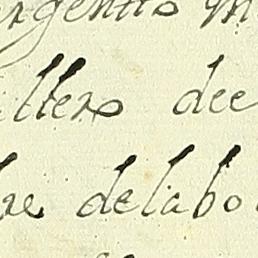 rgentto m
llers dee
re delabo